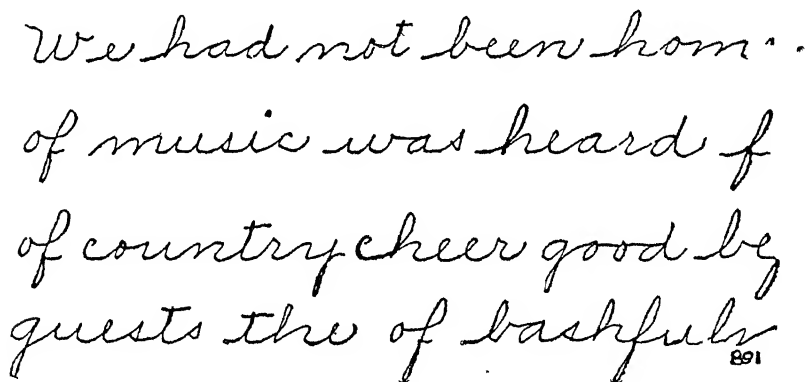 We had not been hom
of music was heard f
of country cheer good be
guests the of bashfuln
891